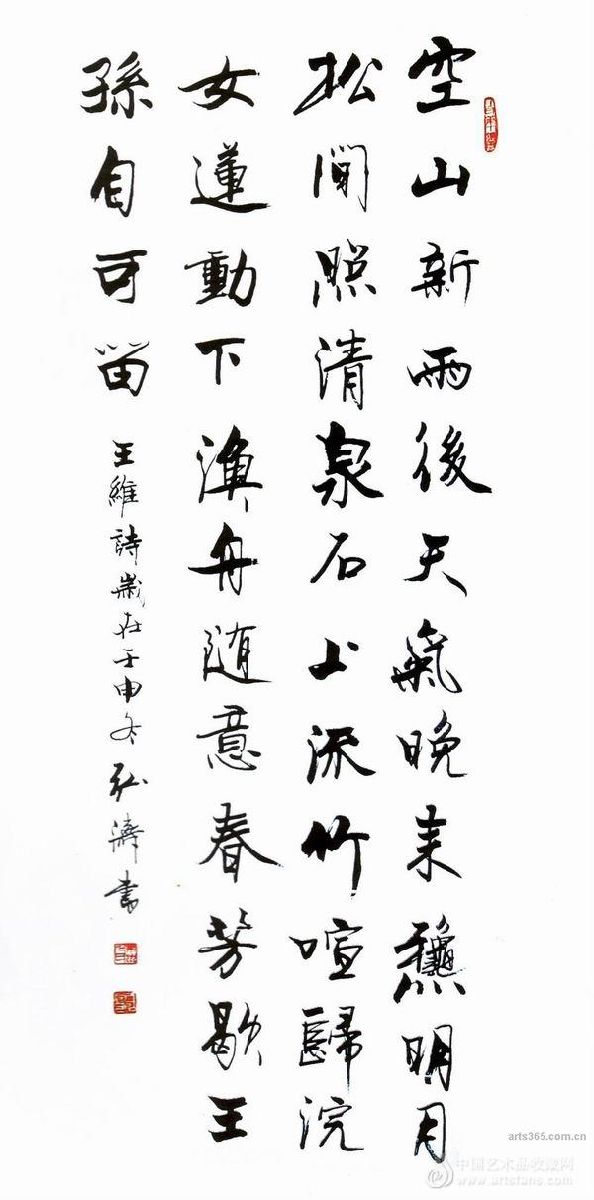 空山新雨後天氣晚来龝明月
松間照清泉石上流竹喧歸浣
女蓮動下漁舟随意春芳歇王
孫自可留
王維詩歲在壬申冬濤書
arts365.com.cn
中国艺术品收藏网
www.artsfans.com